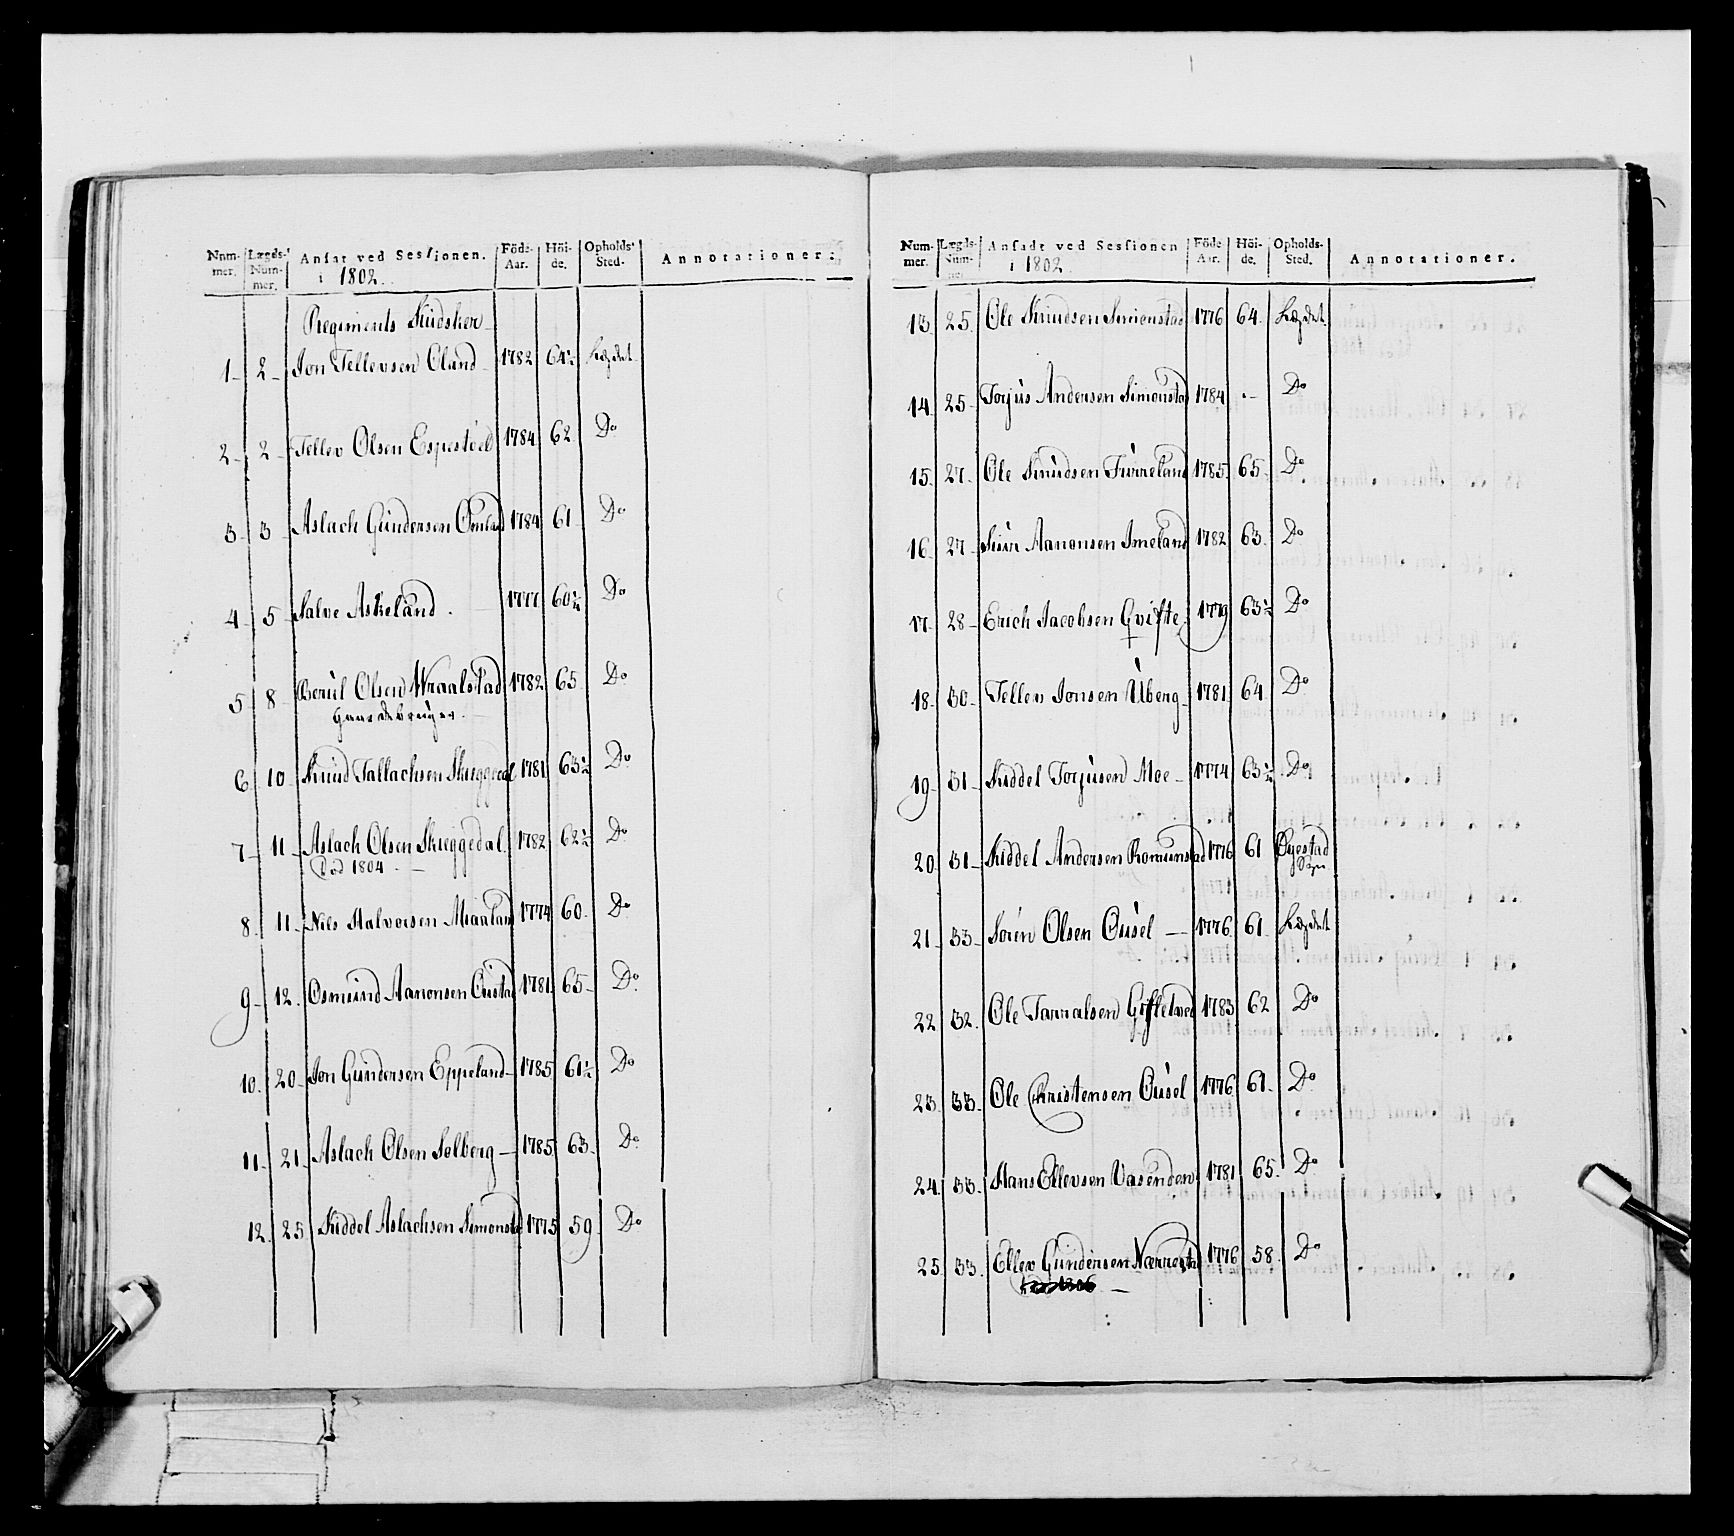 Num-mer. Lægds-Num-mer. Ansat ved Sessionen. i 1802. Föde-Aar. Höi-de. Opholds-Sted. Annotationer.
Regiments Kudsker
1 2 Jon Tellevsen Oland 1782 64½ Lægdet
2 2 Tellev Olsen Espestöel 1784 62 Do
3 3 Aslach Gundersen Omland 1784 61 Do
4 5 Salve Askeland 1777 60¼ Do
5 8 Berul Olsen Wraalstad 1782 65 Do
Gaardebruger
6 10 Knud Tallachsen Skieggedal 1781 63½ Do
7 11 Aslach Olsen Skieggedal 1782 62½ Do
Död 1804
8 11 Nils Halvorsen Miaaland 1774 60 Do
9 12 Osmund Aanonsen 1781 65 Do
10 20 Jon Gundersen Eppeland 1785 61½ Do
11 21 Aslach Olsen Selberg 1785 63 Do
12 25 Kiddel Aslachsen Simonstad 1775 59 Do
Num-mer. Lægds-Num-mer. Ansadt ved Sessionen i 1802 Föde Aar. Höi-de. Opholds-Sted. Annotationer.
13 25 Ole Knudsen Simonstad 1776 64 Lægdet
14 25 Torjus Andersen Simonstad 1784 Do
15 27 Ole Knudsen Furreland 1785 65 Do
16 27 Siur Aanonsen Imeland 1782 63 Do
17 28 Erich Jacobsen Gvifte 1779 63½ Do
18 30 Tellev Jonsen Uberg 1781 64 Do
19 31 Kiddel Torjusen Moe 1774 63½ Do
20 31 Kiddel Andersen Romunstad 1776 61 Öyestad Sogn
21 33 Sören Olsen Ousel 1776 61 Lægdet
22 32 Ole Tarralsen 1783 62 Do
23 33 Ole Christensen Ousel 1776 61 Do
24 33 Hans Ellevsen Vasenden 1781 65 Do
25 33 Ellev Gundersen Nærrestad 1776 58 Do